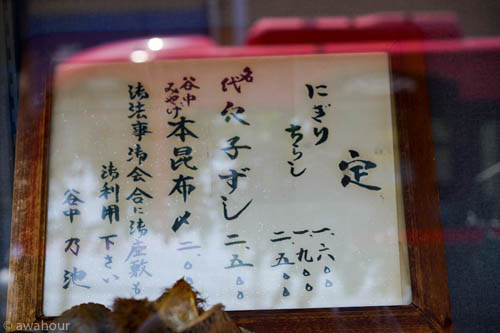 定
にぎり
ちらし
一、六〇〇
一、九〇〇
二、五〇〇
名代 穴子ずし 二、五〇〇
谷中みやげ 本昆布〆 二、〇
御法事御会合に御座敷も
御利用下さい
谷中 乃池
© awahour